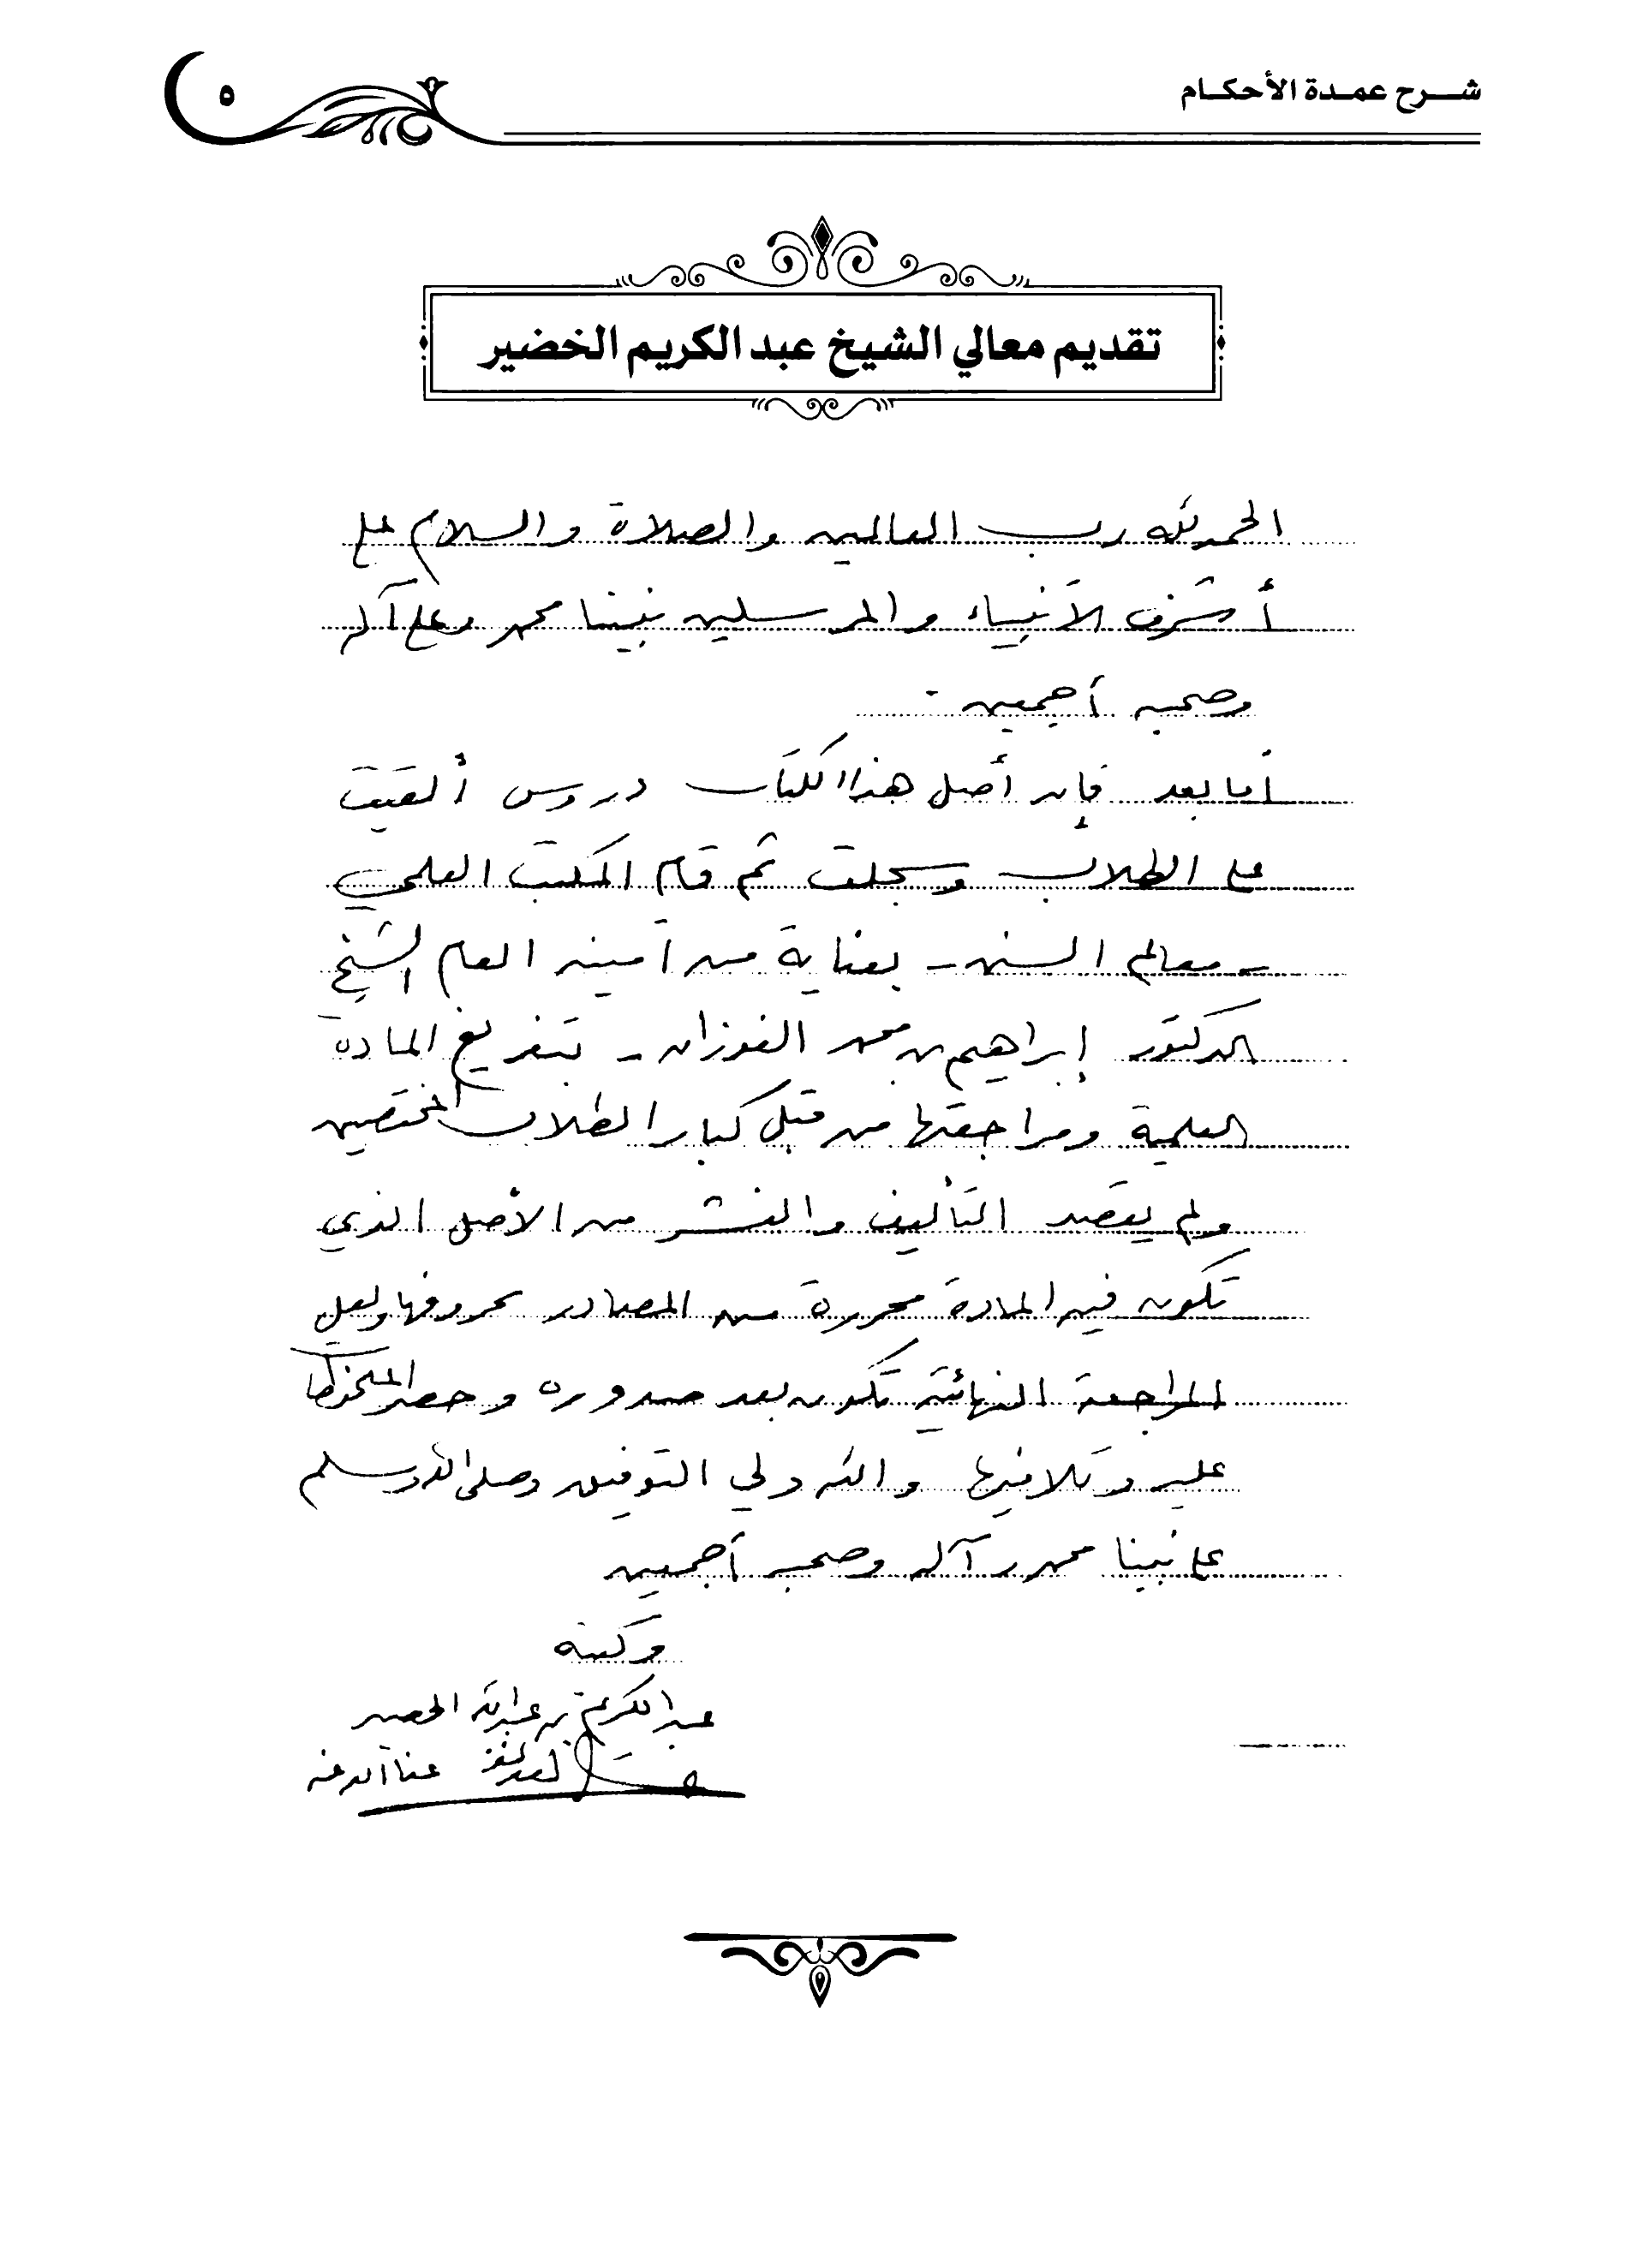 شرح عمدة الأحكام
٥
تقديم معالي الشيخ عبد الكريم الخضير
الحمد لله رب العالمين والصلاة والسلام على
أشرف الأنبياء والمرسلين نبينا محمد وعلى آله
وصحبه أجمعين .
أما بعد فإن أصل هذا الكتاب دروس ألقيت
على الطلاب وسجلت ثم قام المكتب العلمي
- معالم السنن - بعناية من أمينه العام الشيخ
الدكتور إبراهيم بن محمد الفوزان - بتفريغ المادة
العلمية ومراجعتها من قبل كبار الطلاب المختصين
ولم يقصد التأليف والنشر من الأصل الذي
تكون فيه المادة محررة من المصادر بحروفها ولعل
المراجعة النهائية تكون بعد صدوره وحصر الملحوظات
عليه وتلافيها والله ولي التوفيق وصلى الله وسلم
على نبينا محمد وآله وصحبه أجمعين
وكتبه
عبد الكريم بن عبد الله الخضير
عفا الله عنه